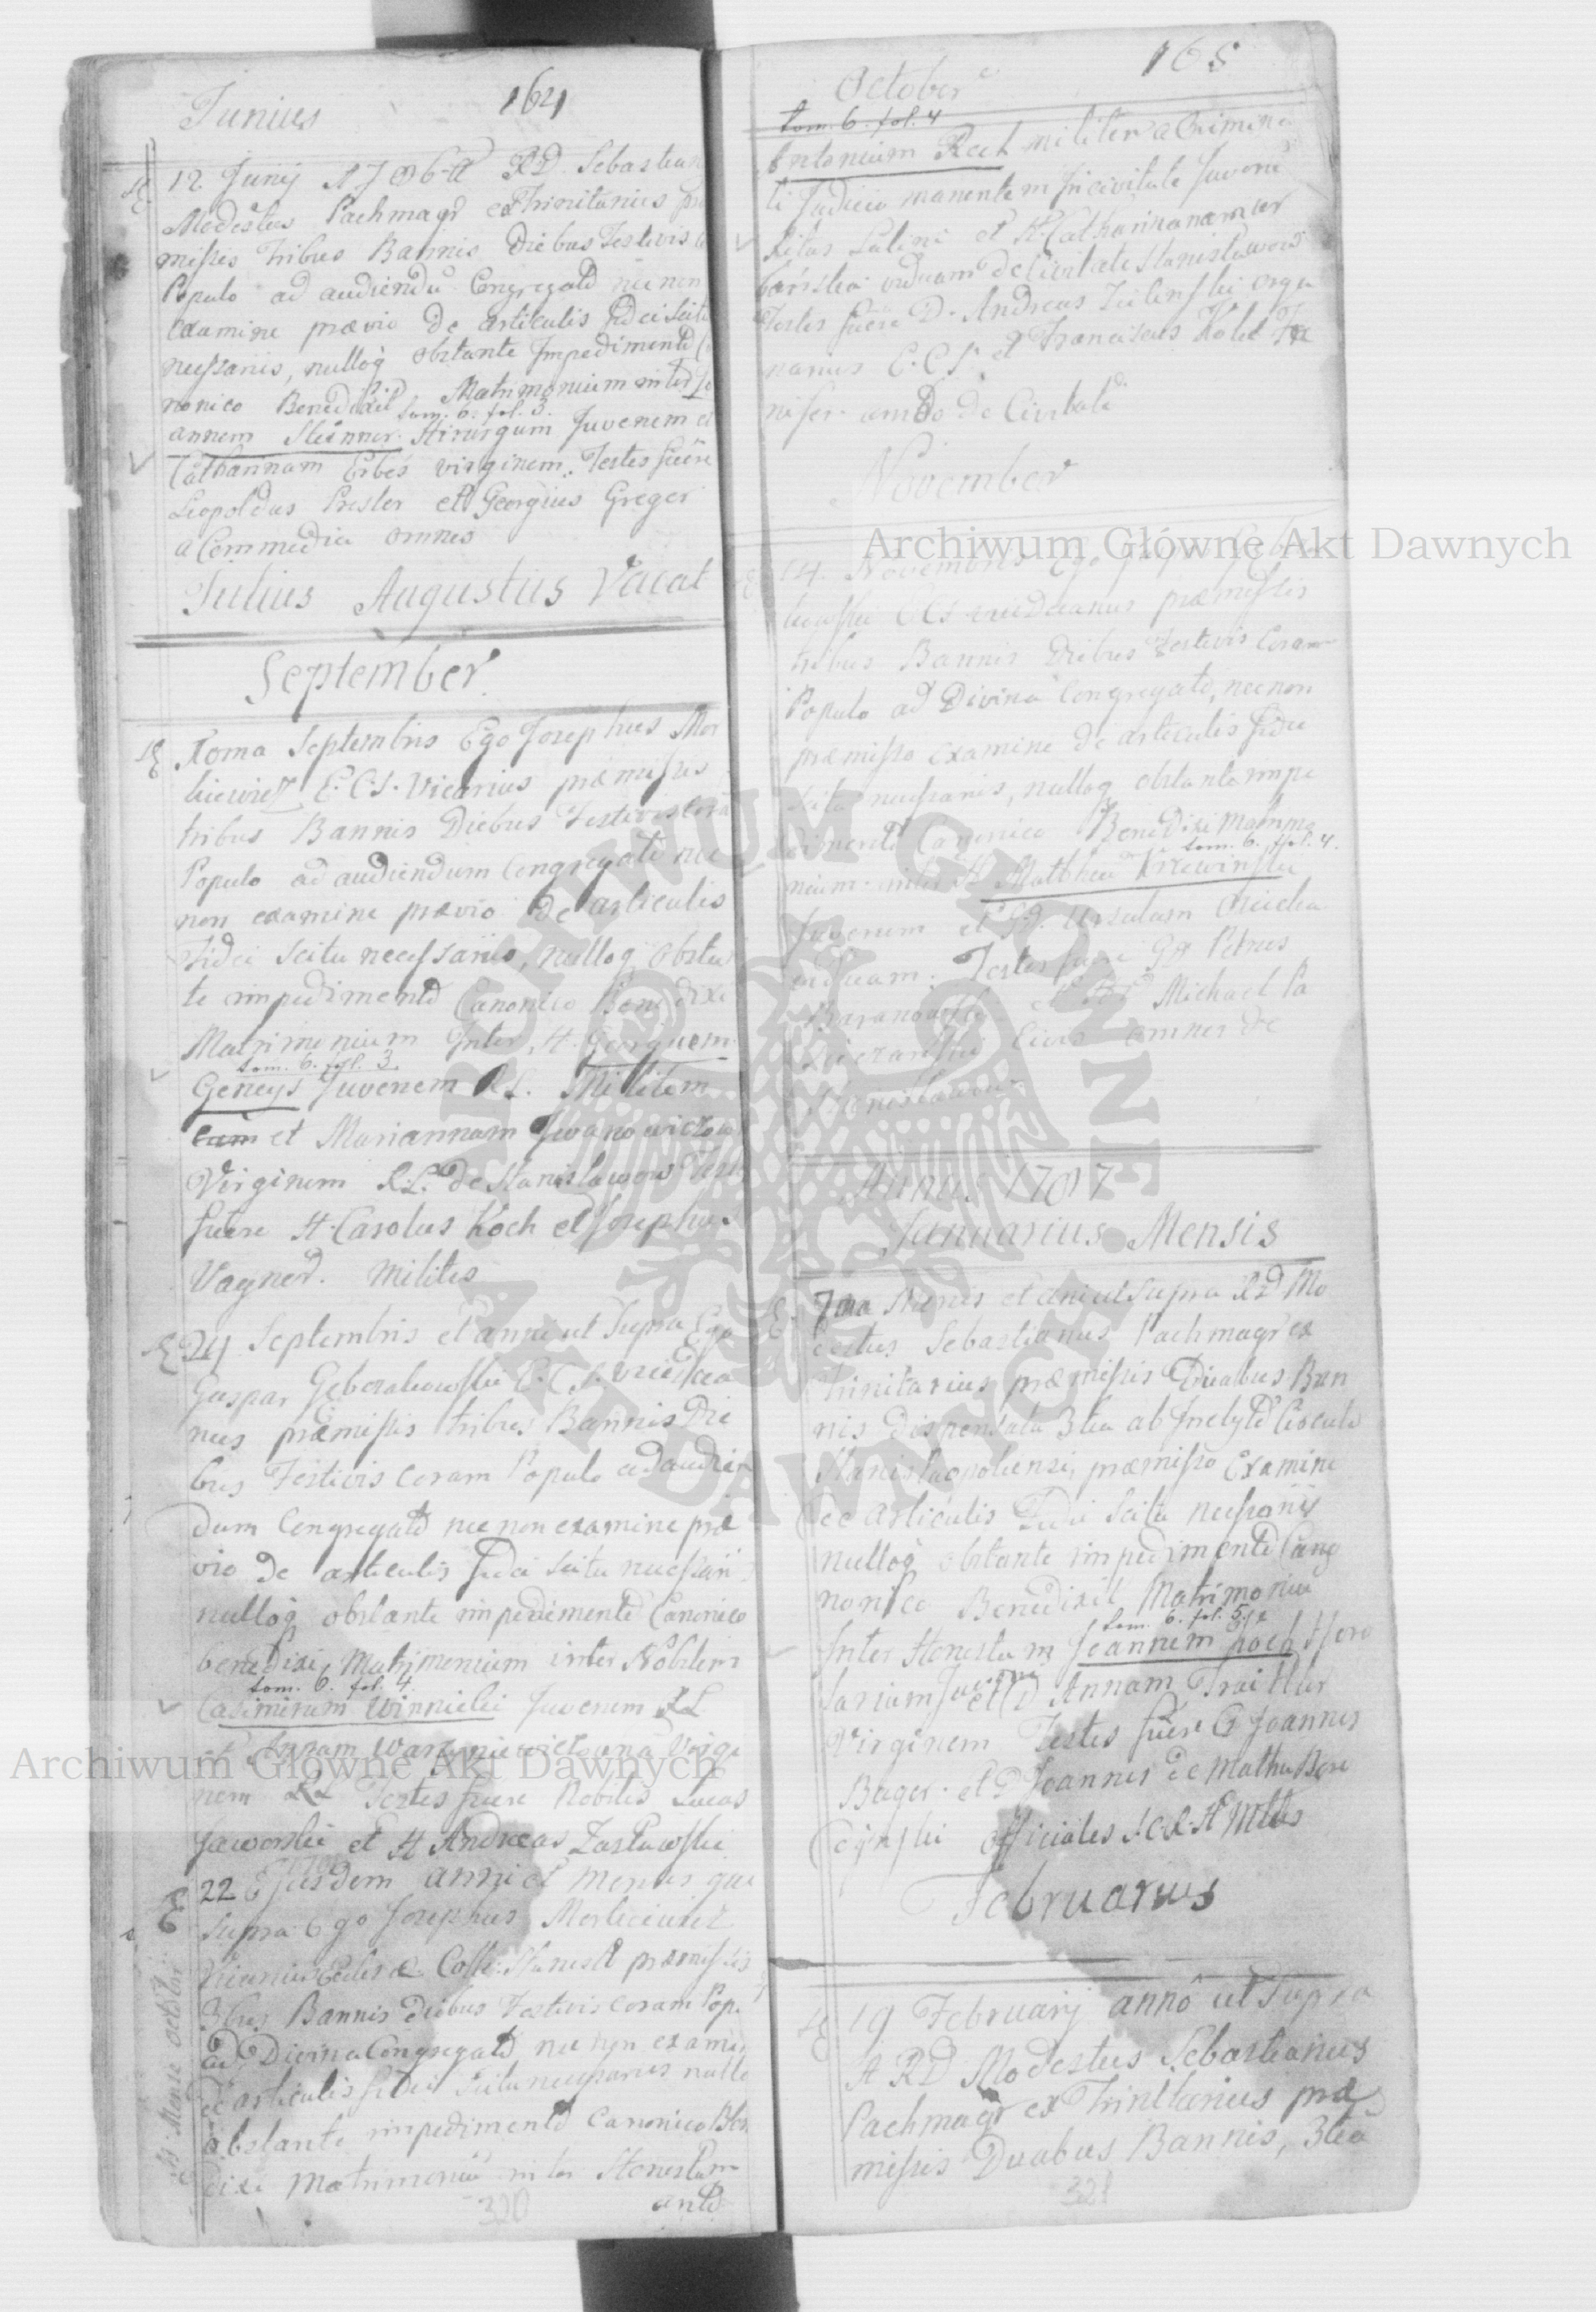 Junius 164
12 Junij 1786tt RD Sebastian
Modestus Pachmagr exTrinitarius præ
missis tribus Bannis Diebus Festivis
Populo ad audiendū Congregatō nec non
examine prævio de articulis fidei scitu
necessariis, nulloq obstante Impedimentō
nonico Benedixit Matrimonium inter Jo
tom. 6. fol. 3.
annem Steinner Hirurgum Juvenem et
Catharinam Erbes virginem. Testes fuere
Leopoldus Presler et Georgius Greger
a Commedia omnes
Julius Augustus Vacat
September
Xoma Septembris Ego Josephus Mor
E.C.S. Vicarius præmissis
tribus Bannis Diebus Festivis corā
Populo ad audiendum Congregatō nec
non examine prævio de articulis
Fidei Scitu necessariis, nulloq obstan
te impedimentō Canonico Benedixi
Matrimonium Inter H. Georgium
tom. 6. fol. 3.
Geneys Juvenem RL. Militem
eam et Mariannam Iwanowiczow
Virginem R.L. de Stanislawow Test
fuere H. Carolus Koch et Josephus
Vagner. Milites
24 Septembris et anni ut Supra Ego
Gaspar E.C.S. viceDeca
nus præmissis tribus Bannis Die
bus Festivis coram Populo ad audien
dum Congregatō nec non examine præ
vio de articulis fidei scitu necessarii
nulloq obstante impedimentō Canonico
benedixi Matrimonium inter Nobilem
tom. 6. fol. 4.
Casimirum Winnicki Juvenem RL
et Annam Virgi
nem RL Testes fuere Nobilis Lucas
Jaworski et H Andreas Zastawski
22 Ejusdem anni et Mensis qui
supra Ego Josephus
Vicarius præmissis
3bus Bannis diebus Festivis coram Pop.
ad Divina Congregatō nec non exami
de articulis fidei scitu necessariis nullo
obstante impedimentō Canonico Ben
dixi Matrimoniū inter Honestum
antō
320
October 165
tom. 6. fol. 4
Antonium Rech militem a Crimina
li Judicio manentem in civitate Juvenē
Ritus Latini et H. Catharinam
viduam de Civitate Stanislawow
Testes fuere D. Andreas Zielinski orga
narius E.C.S. et Franciscus
nifer. ambo de Civitate
November
14. Novembris Ego Gaspar
ECS viceDecanus præmissis
tribus Bannis Diebus Festivis Coram
Populo ad Divina Congregatō, nec non
præmisso examine de articulis fidei
scitu necessariis, nulloq obstante impe
dimentō Canonico Benedixi Matrimo
tom. 6. fol. 4.
nium inter H Matheū Krzewinski
Juvenem et GD. Ursulam
viduam. Testes fuere GD Petrus
Baranowski et Michael Pa
Cives omnes de
Stanislawow
Annus 1787
Januarius Mensis
7ma Mensis et anni ut supra RD Mo
destus Sebastianus Pachmagr ex
Trinitarius præmissis Duabus Ban
nis dispensata 3tia ab Inclyto Circulo
Stanislaopoliensi, præmisso Examine
de articulis Fidei scitu necessariis
nulloq obstante impedimentō Cano
nonico Benedixit Matrimoniū
tom. 6. fol. 5.
Inter Honestum Joannem Koch Horo
larium Juvenem et D Annam Traittler
Virginem Testes fuere G Joannes
Bager. et D Joannes de Mathu
officiales
Februarius
19 Februarij annō ut supra
A RD Modestus Sebastianus
Pachmagr ex Trinitarius præ
missis Duabus Bannis, 3tia
321
Archiwum Główne Akt Dawnych
Archiwum Główne Akt Dawnych
ARCHIWUM GŁÓWNE AKT DAWNYCH